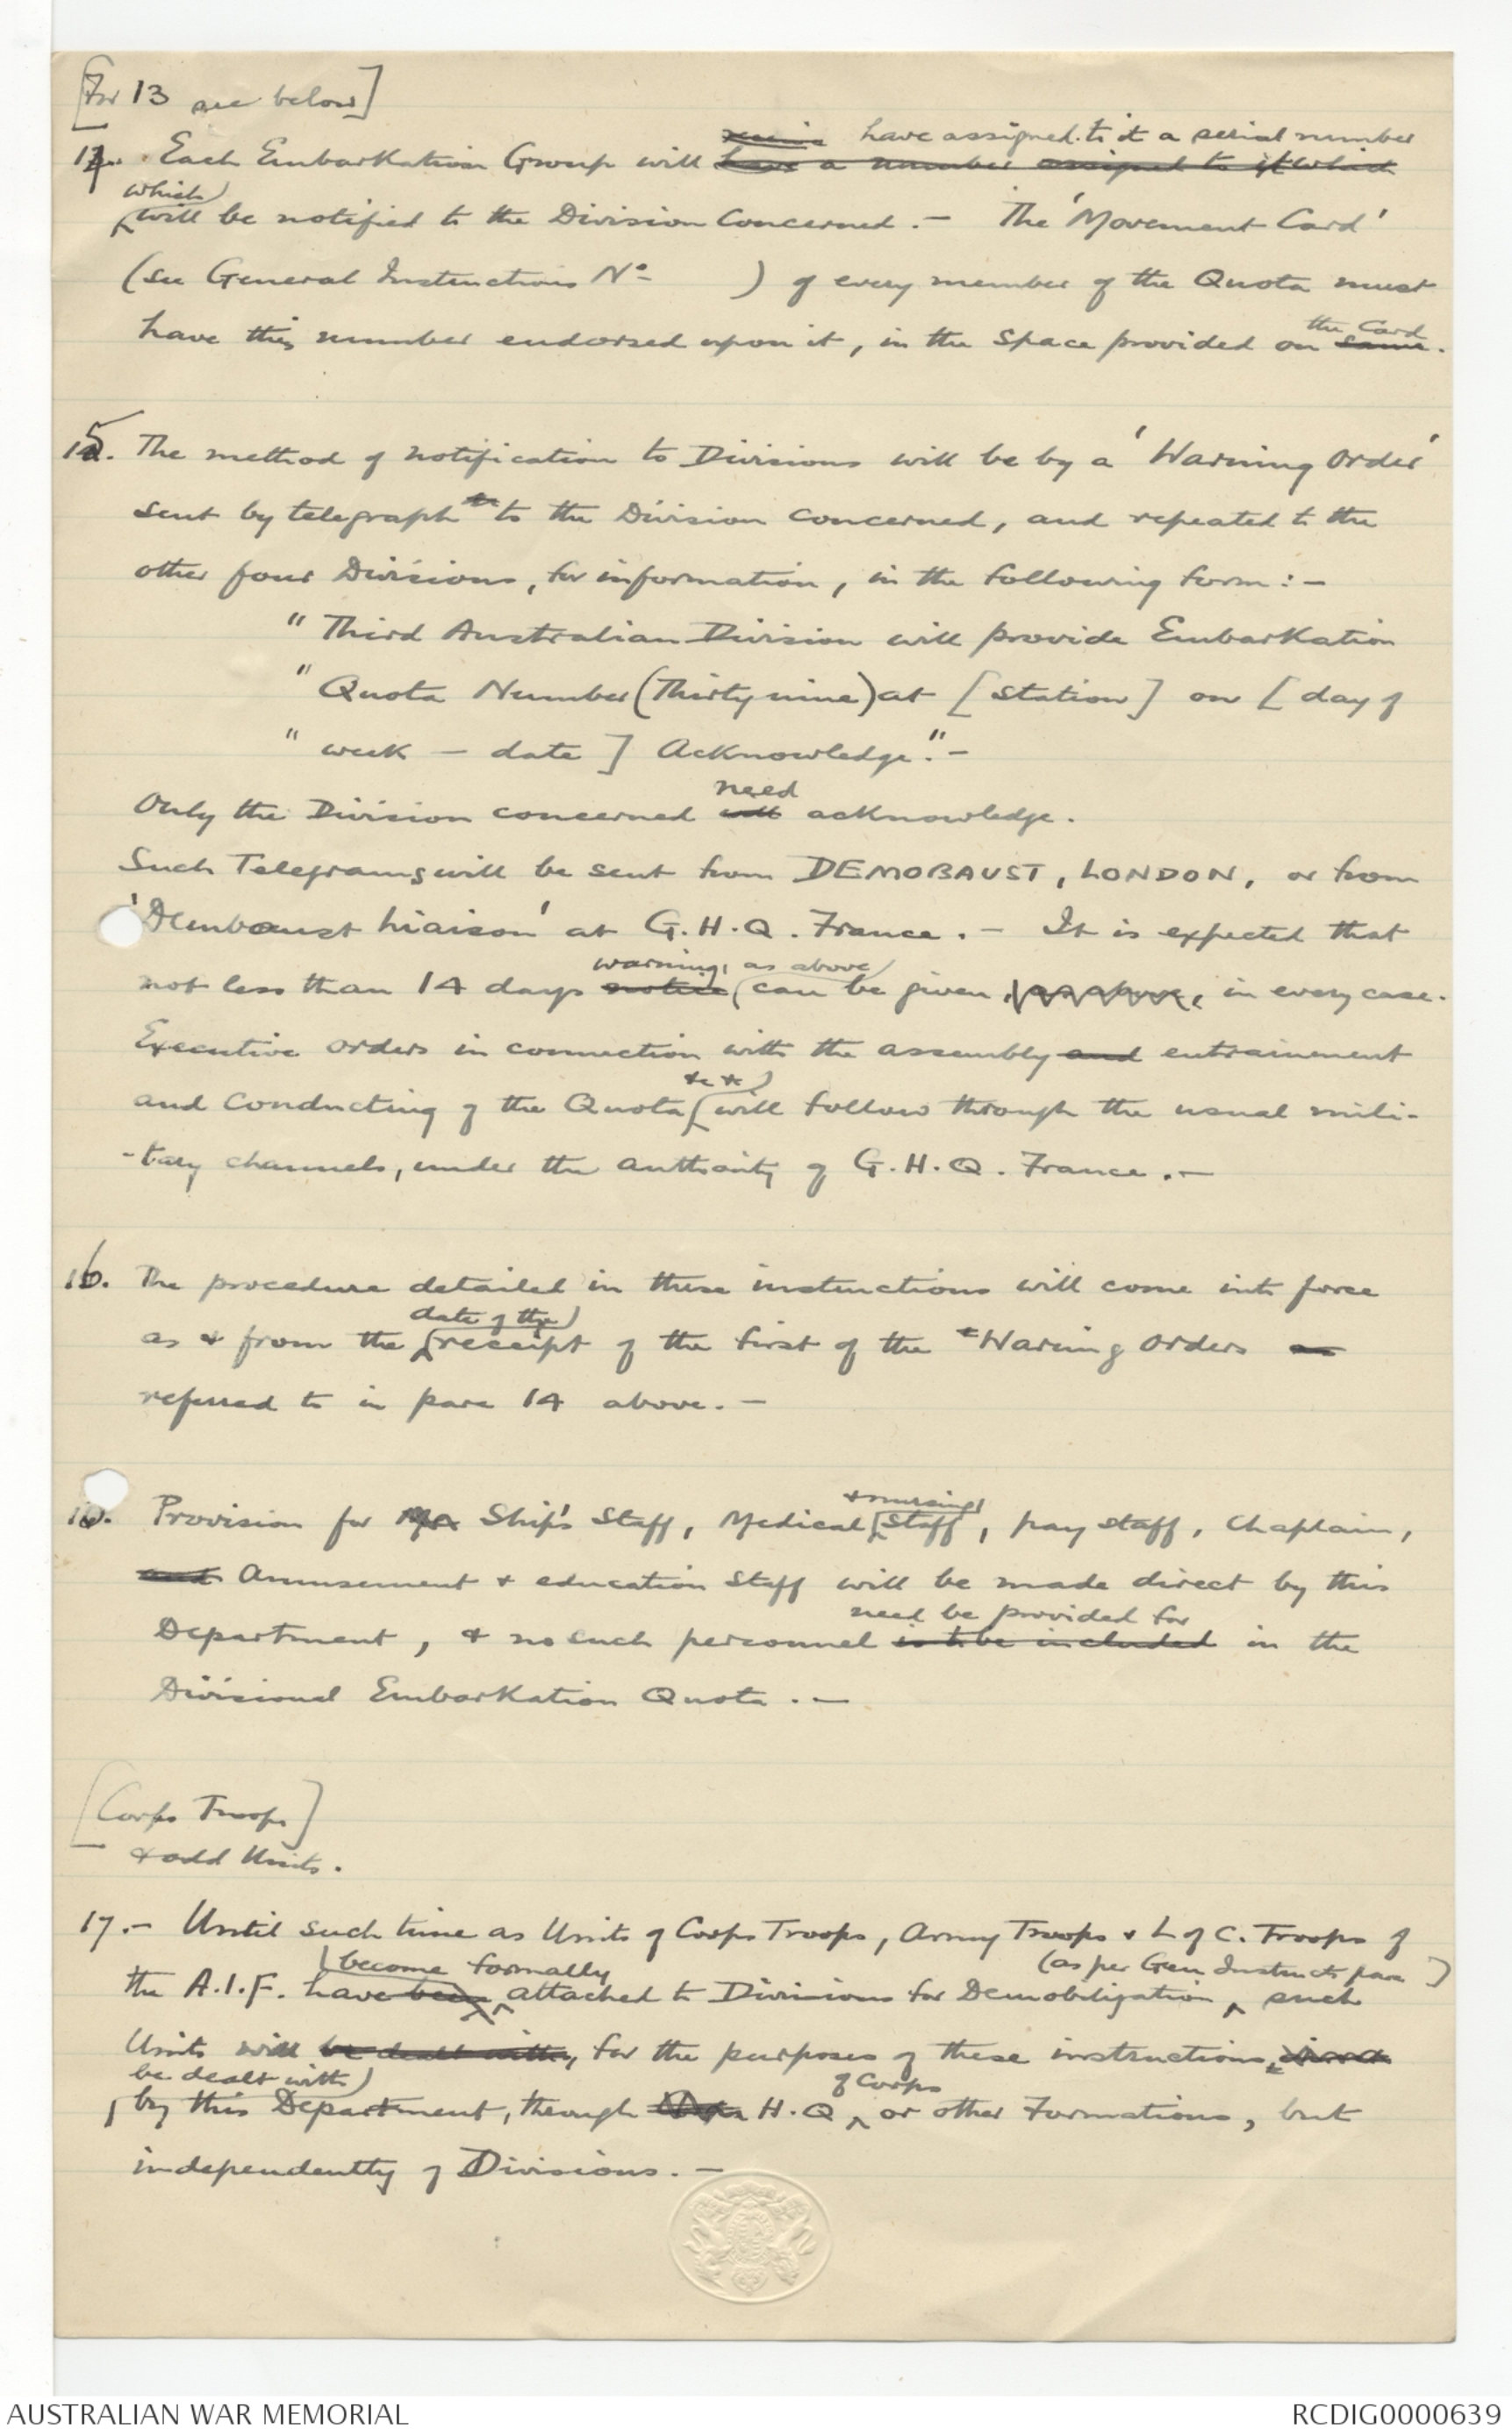 [For 13 see below]
have assigned to it a serial number
14. Each Embarkation Group will have a number assigned to it which
which
will be notified to the Division Concerned. - The 'Movement Card'
(see General Instructions No ) of every member of the Quota must
the Card
have this number endorsed upon it, in the space provided on same.
15. The method of notification to Divisions will be by a 'Warning Order'
sent by telegraph to to the Division concerned, and repeated to the
other four Divisions, for information, in the following form:-
"Third Australian Division will provide Embarkation
"Quota Number (Thirty nine) at [station] on [day of
"week - date] Acknowledge." -
need
Only the Division concerned will acknowledge.
Such Telegrams will be sent from DEMOBAUST, LONDON, or from
'Demobaust Liaison' at G.H.Q. France. - It is expected that
warning, as above
not less than 14 days notice can be given, as above, in every case.
Executive orders in connection with the assembly and entrainement
&c &c
and conducting of the Quota will follow through the usual mili-
-tary channels, under the authority of G.H.Q. France. -
16. The procedure detailed in these instructions will come into force
date of the
as & from the receipt of the first of the Waring Orders
referred to in para 14 above. -
& nursing
16. Provision for Ship's Staff, Medical staff, pay staff, Chaplain,
and Amusement & education Staff will be made direct by this
need be provided for
Department, & no such personnel is to be included in the
Divisional Embarkation Quota. -
[Corps Troops]
& odd Units.
17. - Until such time as Units of Corps Troops, Army Troops & L of C. Troops of
become formally (as per Gen Instructs para )
the A.I.F. have been attached to Divisions for Demobilization, such
Units will be dealt with, for the purposes of these instructions,
be dealt with of Corps
by this Department, through H.Q. or other Formations, but
independently of Divisions. -
AUSTRALIAN WAR MEMORIAL
RCDIG0000639